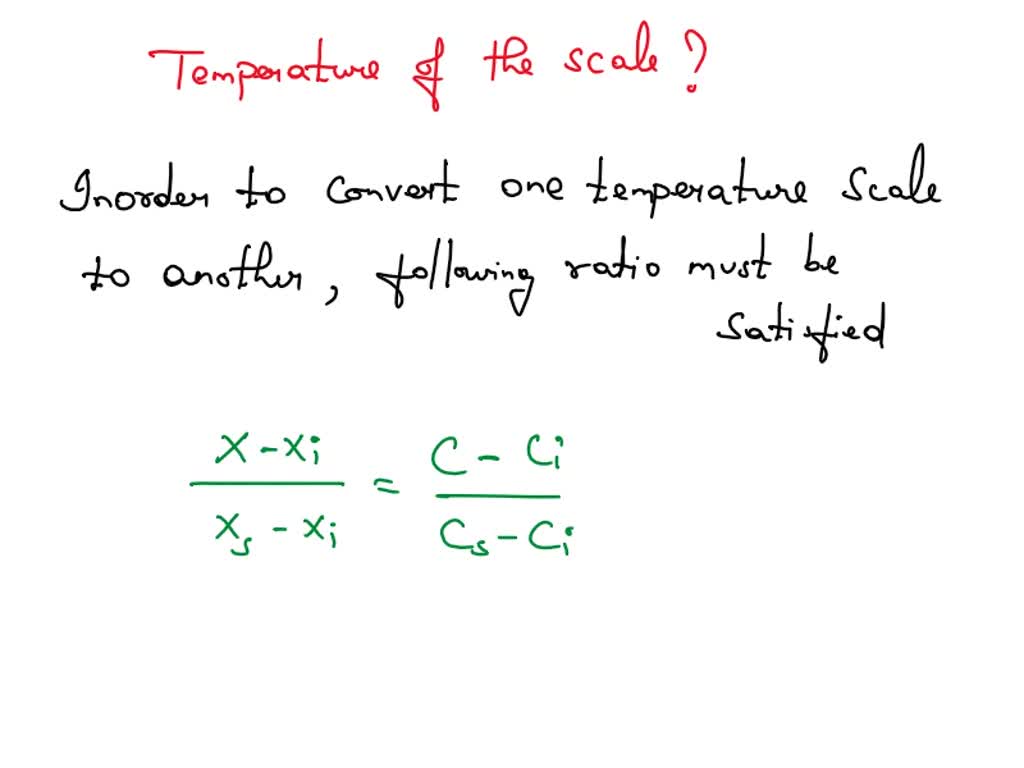 Temperature of the scale?
Inorder to convert one temperature scale
to another, following ratio must be
satisfied
X - Xi / Xs - Xi = C - Ci / Cs - Ci